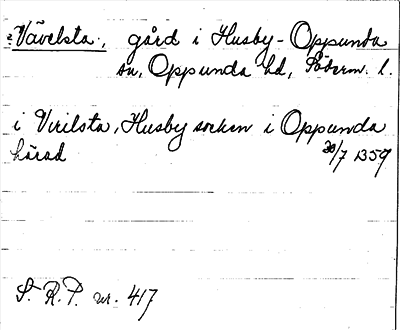 ?Vävelsta, gård i Husby-Oppunda
sn, Oppunda hd, Söderm. l.
i Virilsta, Husby socken i Oppunda
härad 20/7 1359
S. R. P. nr. 417